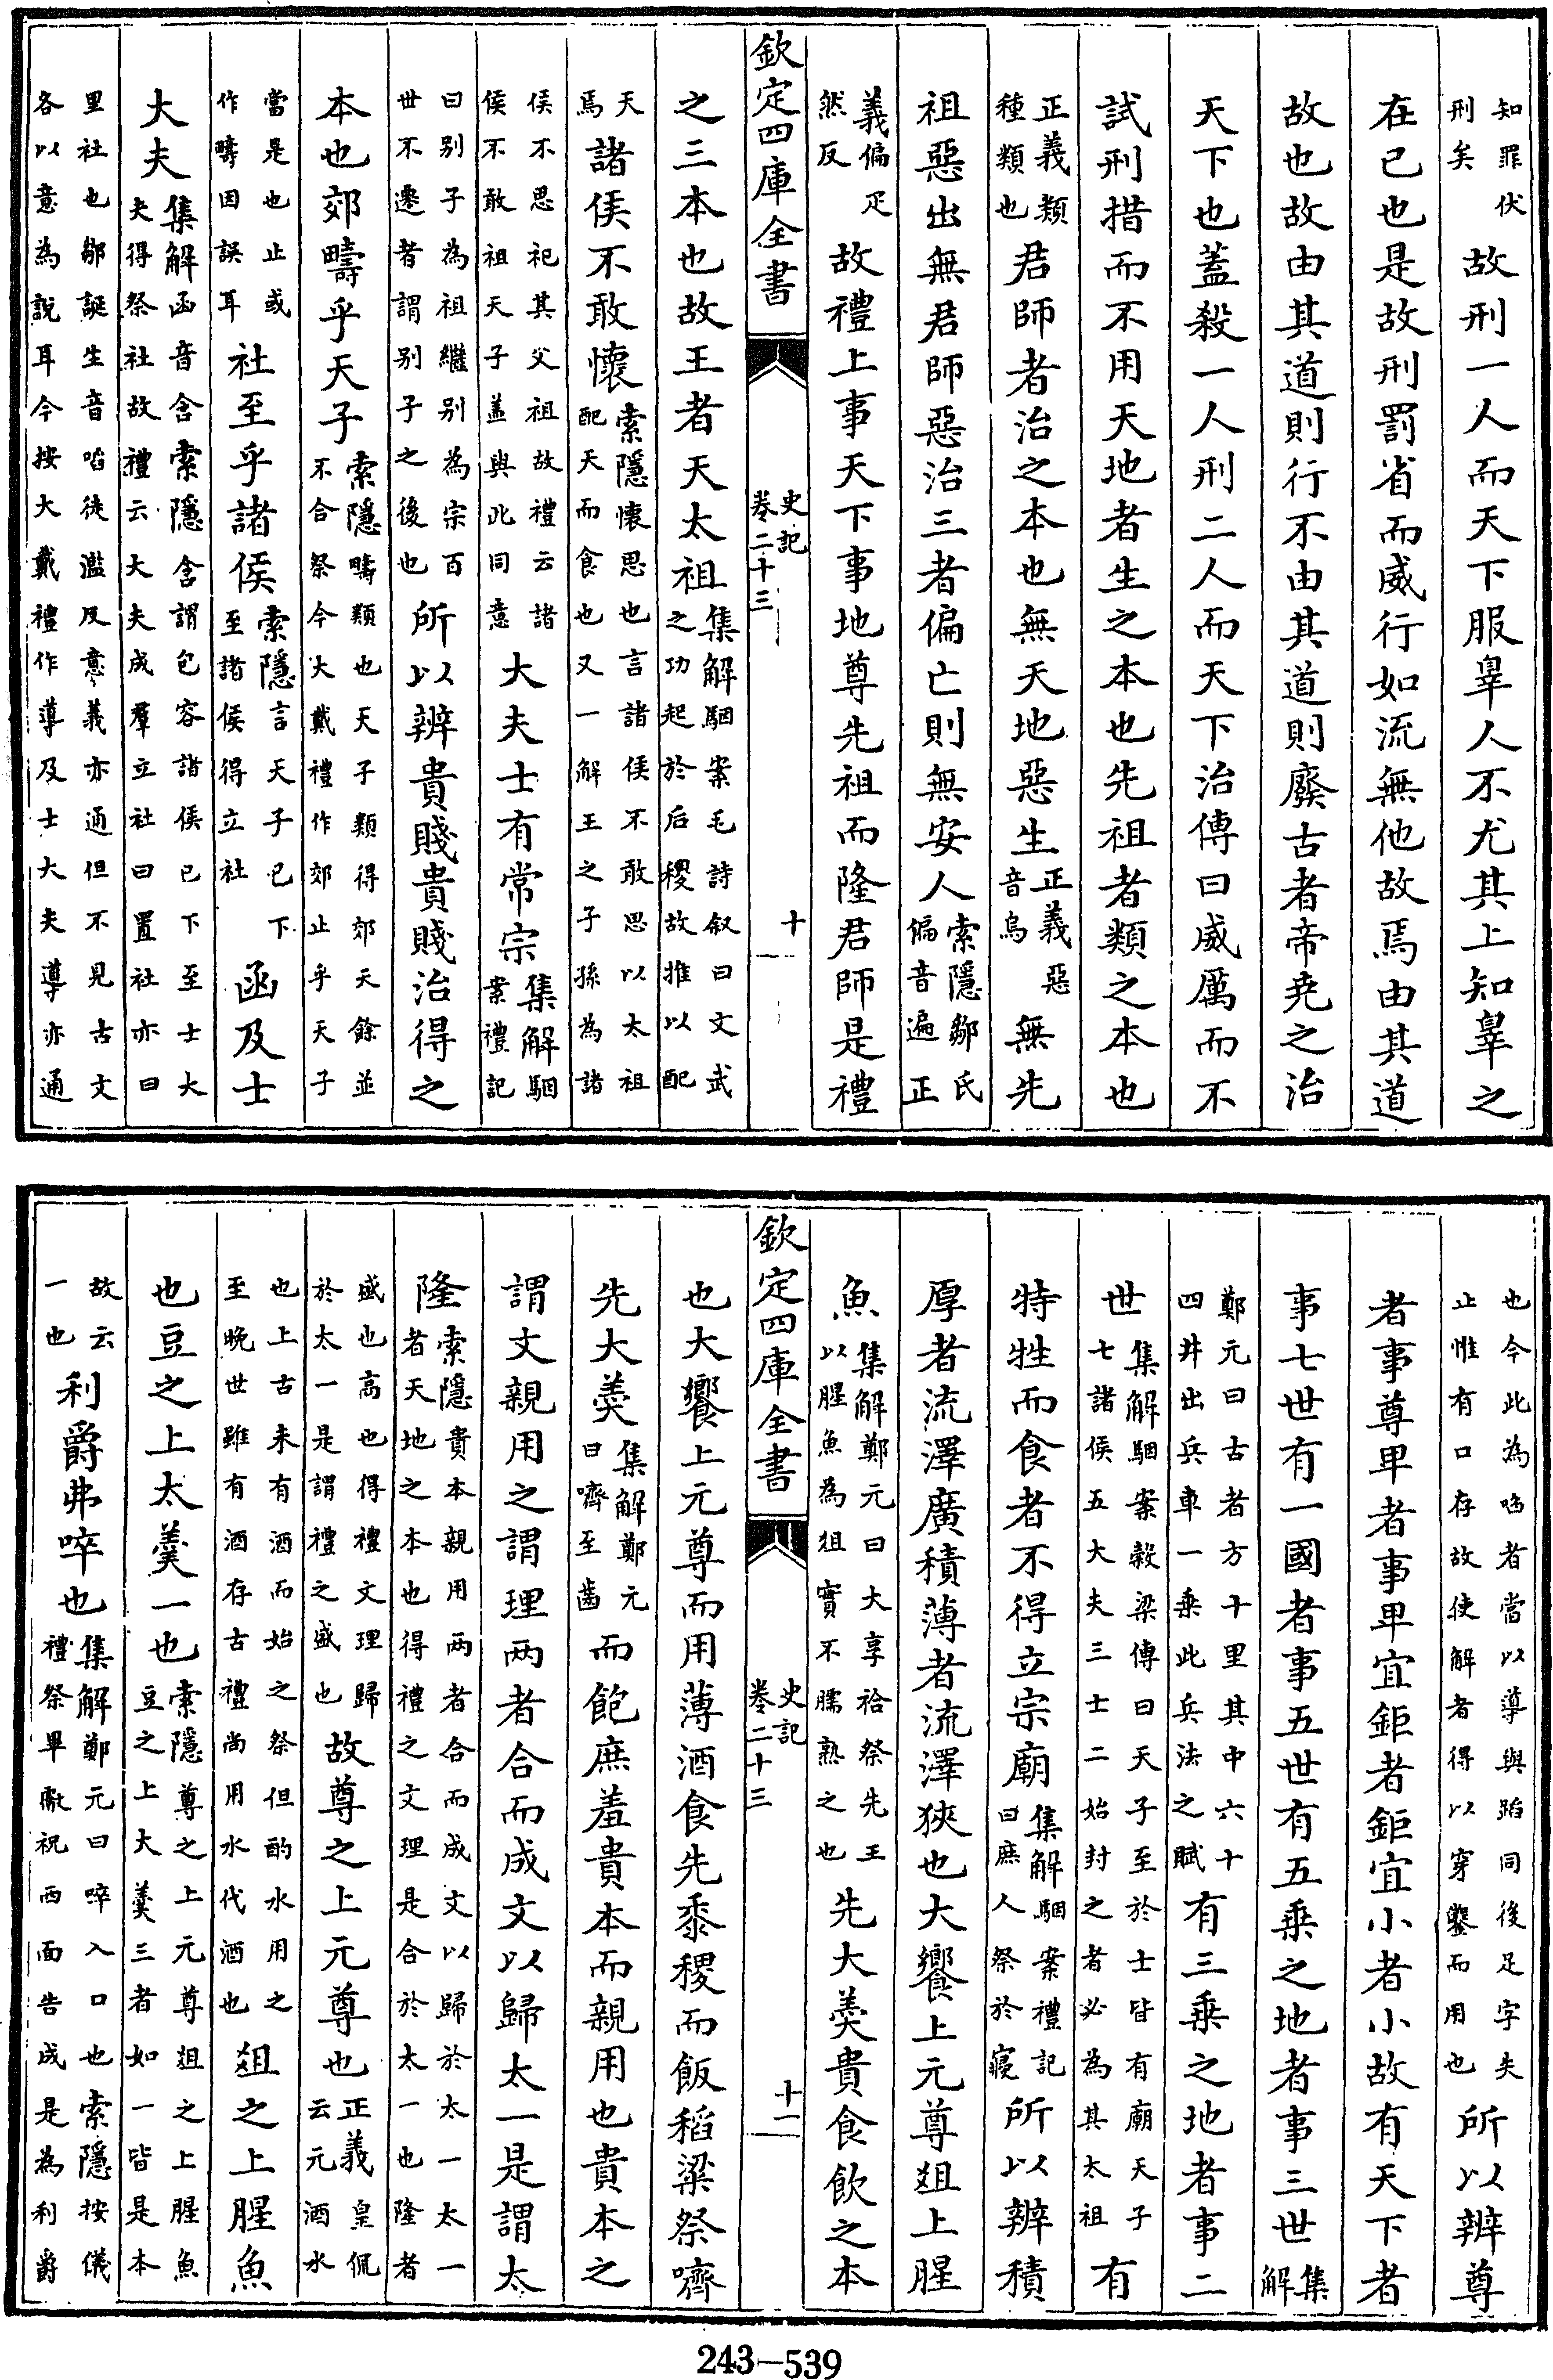 知罪伏刑矣故刑一人而天下服辠人不尤其上知辠之
在已也是故刑罰省而威行如流無他故焉由其道
故也故由其道則行不由其道則廢古者帝堯之治
天下也蓋殺一人刑二人而天下治傳曰威厲而不
試刑措而不用天地者生之本也先祖者類之本也
正義類種類也君師者治之本也無天地惡生正義惡音烏無先
祖惡出無君師惡治三者偏亡則無安人索隱鄒氏偏音遍正
義偏疋然反故禮上事天下事地尊先祖而隆君師是禮
欽定四庫全書 史記卷二十三 十
之三本也故王者天太祖集解駰案毛詩叙曰文武之功起於后稷故推以配
天焉諸侯不敢懷索隱懷思也言諸侯不敢思以太祖配天而食也又一解王之子孫為諸
侯不思祀其父祖故禮云諸侯不敢祖天子盖與此同意大夫士有常宗集解駰案禮記
曰别子為祖繼别為宗百世不遷者謂别子之後也所以辨貴賤貴賤治得之
本也郊疇乎天子索隱疇類也天子類得郊天餘並不合祭今大戴禮作郊止乎天子
當是也止或作疇因誤耳社至乎諸侯索隱言天子已下至諸侯得立社函及士
大夫集解函音含索隱含謂包容諸侯已下至士大夫得祭社故禮云大夫成羣立社曰置社亦曰
里社也鄒誕生音啗徒濫反意義亦通但不見古文各以意為說耳今按大戴禮作導及士大夫導亦通
也今此為啗者當以導與蹈同後足字失止惟有口存故使解者得以穿鑿而用也所以辨尊
者事尊卑者事卑宜鉅者鉅宜小者小故有天下者
事七世有一國者事五世有五乘之地者事三世集解
鄭元曰古者方十里其中六十四井出兵車一乘此兵法之賦有三乘之地者事二
世集解駰案榖梁傳曰天子至於士皆有廟天子七諸侯五大夫三士二始封之者必為其太祖有
特牲而食者不得立宗廟集解駰案禮記曰庶人祭於寢所以辨積
厚者流澤廣積薄者流澤狹也大饗上元尊爼上腥
魚集解鄭元曰大享祫祭先王以腥魚為俎實不臑熟之也先大羹貴食飲之本
欽定四庫全書 史記卷二十三 十一
也大饗上元尊而用薄酒食先黍稷而飯稻粱祭嚌
先大羹集解鄭元曰嚌至齒而飽庶羞貴本而親用也貴本之
謂文親用之謂理兩者合而成文以歸太一是謂太
隆索隱貴本親用两者合而成文以歸於太一太一者天地之本也得禮之文理是合於太一也隆者
盛也高也得禮文理歸於太一是謂禮之盛也故尊之上元尊也正義皇侃云元酒水
也上古未有酒而始之祭但酌水用之至晚世雖有酒存古禮尚用水代酒也爼之上腥魚
也豆之上太羹一也索隱尊之上元尊爼之上腥魚豆之上大羹三者如一皆是本
故云一也利爵弗啐也集解鄭元曰啐入口也索隱按儀禮祭畢獻祝西面告成是為利爵
243—539